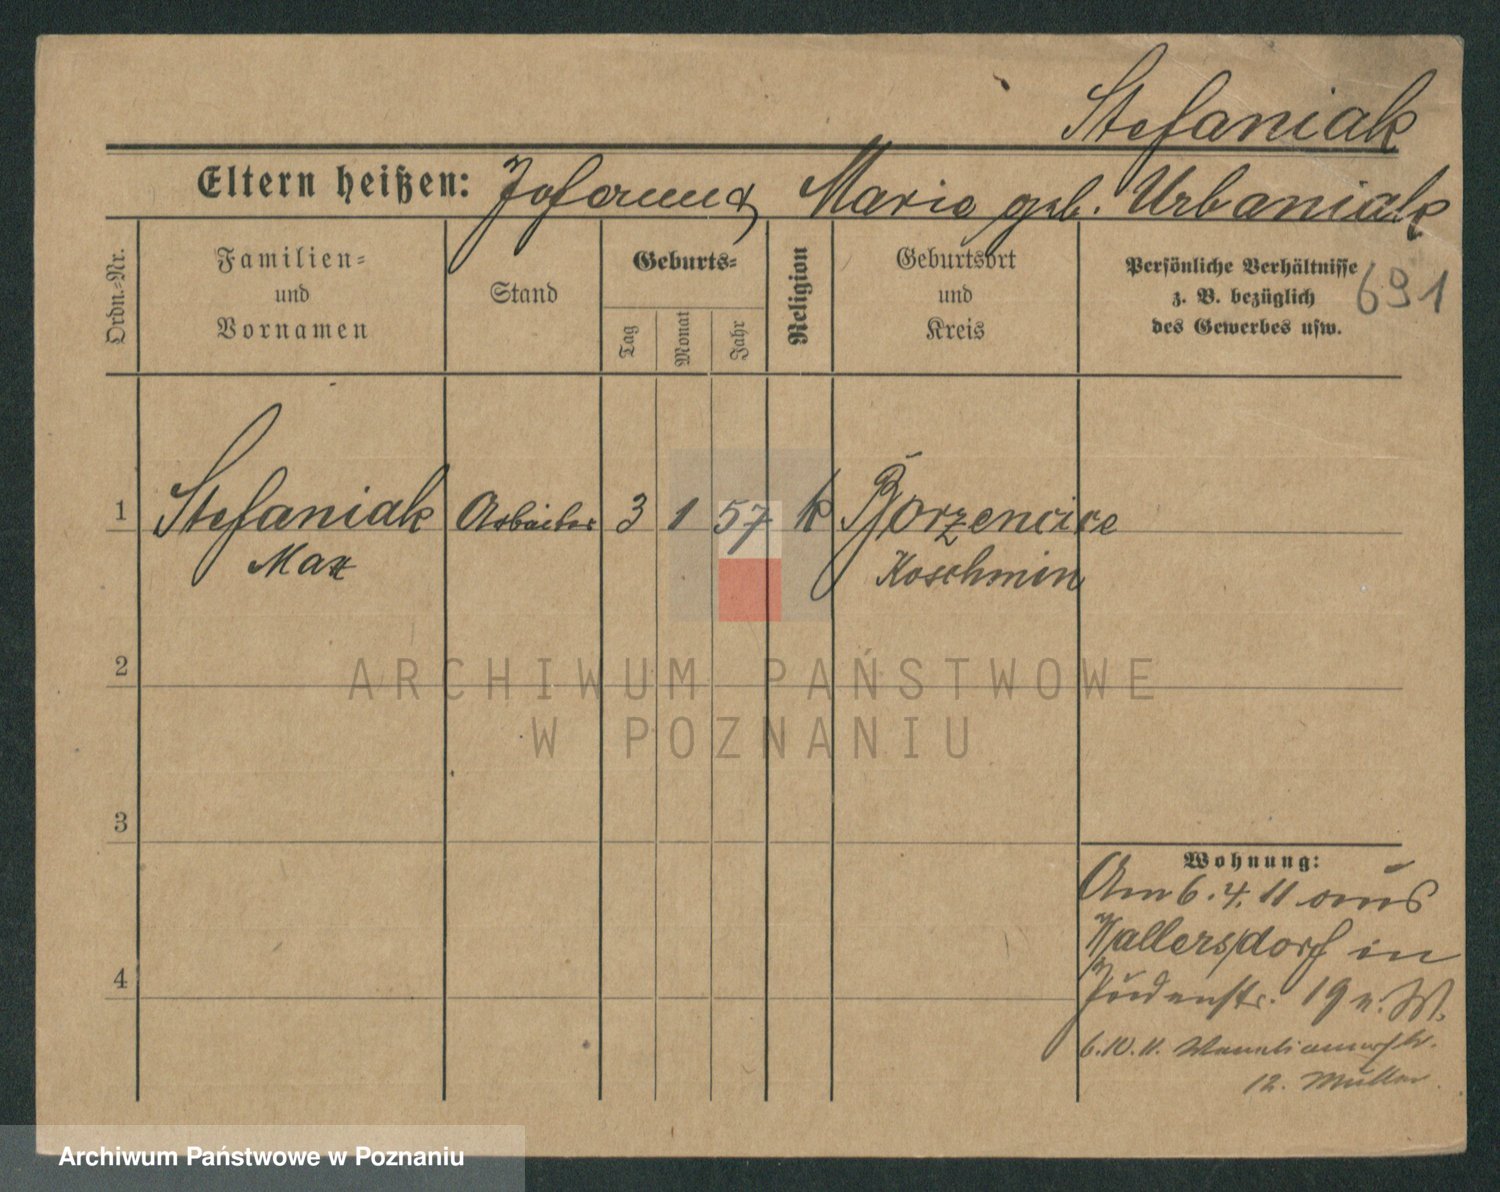 Stefaniak
Eltern heißen: Johann & Marie geb. Urbaniak
Ordn.-Nr.
Familien-
und
Vornamen
Stand
Geburts-
Tag
Monat
Jahr
Religion
Geburtsort
und
Kreis
Persönliche Verhältnisse
z. B. bezüglich
des Gewerbes usw.
691
1 Stefaniak Arbeiter 3 1 57 k Borzencice
Max Koschmin
2
3
4
Wohnung:
Am 6.4.11 aus
Wallersdorf in
Judenstr. 19 n. W.
6.10.11.
12. Müller
ARCHIWUM PAŃSTWOWE
W POZNANIU
Archiwum Państwowe w Poznaniu